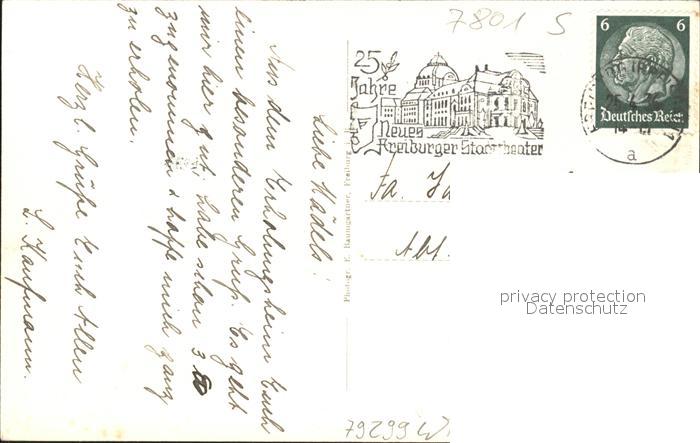 7801 S
25
Jahre
Neues
Freiburger Stadttheater
6 6
Deutsches Reich
a
Liebe Mädels!
Aus dem Erholungsheim Euch
einen besonderen Gruß. Es geht
mir hier gut, habe schon 3 ℔
zugenommen & hoffe mich ganz
zu erholen.
Herzl. Grüße Euch Allen
L. Kaufmann.
Photogr. E. Baumgartner, Freiburg
Fa.
Abt.
privacy protection
Datenschutz
79299